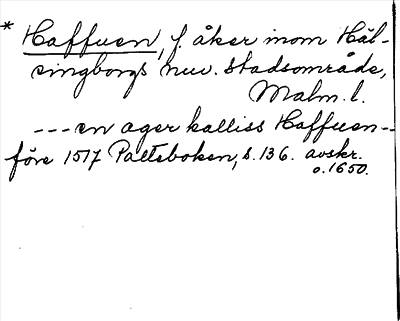 * Haffuen, f. åker inom Häl-
singborgs nuv. stadsområde,
Malm. l.
--- en ager kalliss Haffuen --
före 1517 Palteboken, s. 136. avskr.
o. 1650.